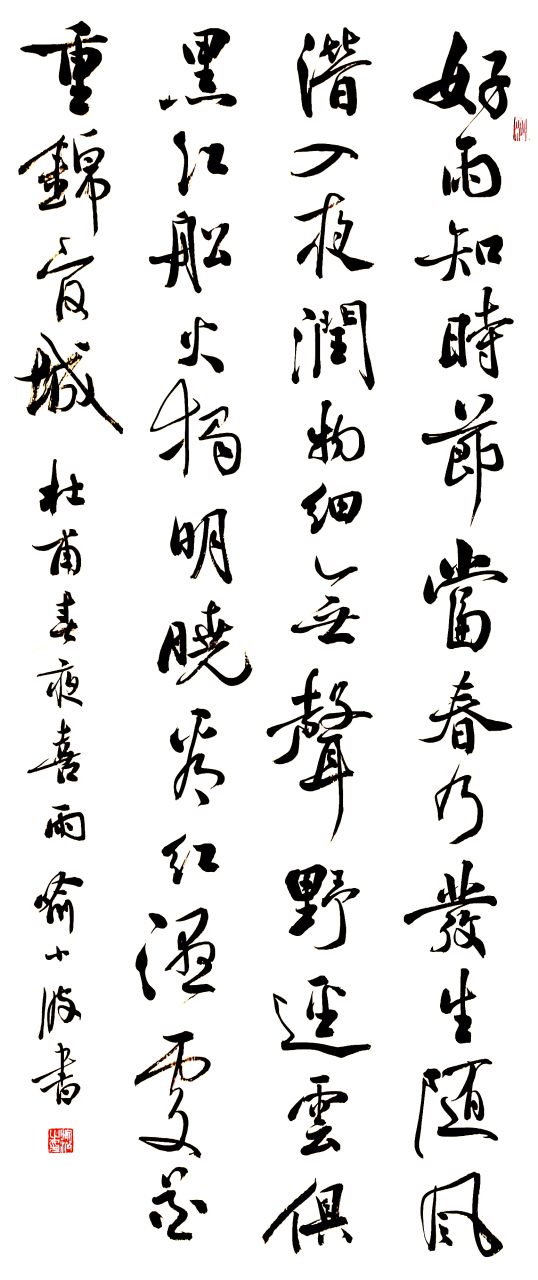 好雨知時節當春乃發生随風
潜入夜潤物細無聲野逕雲俱
黑江船火獨明曉看紅濕處花
重錦官城 杜甫春夜喜雨 喻小波書